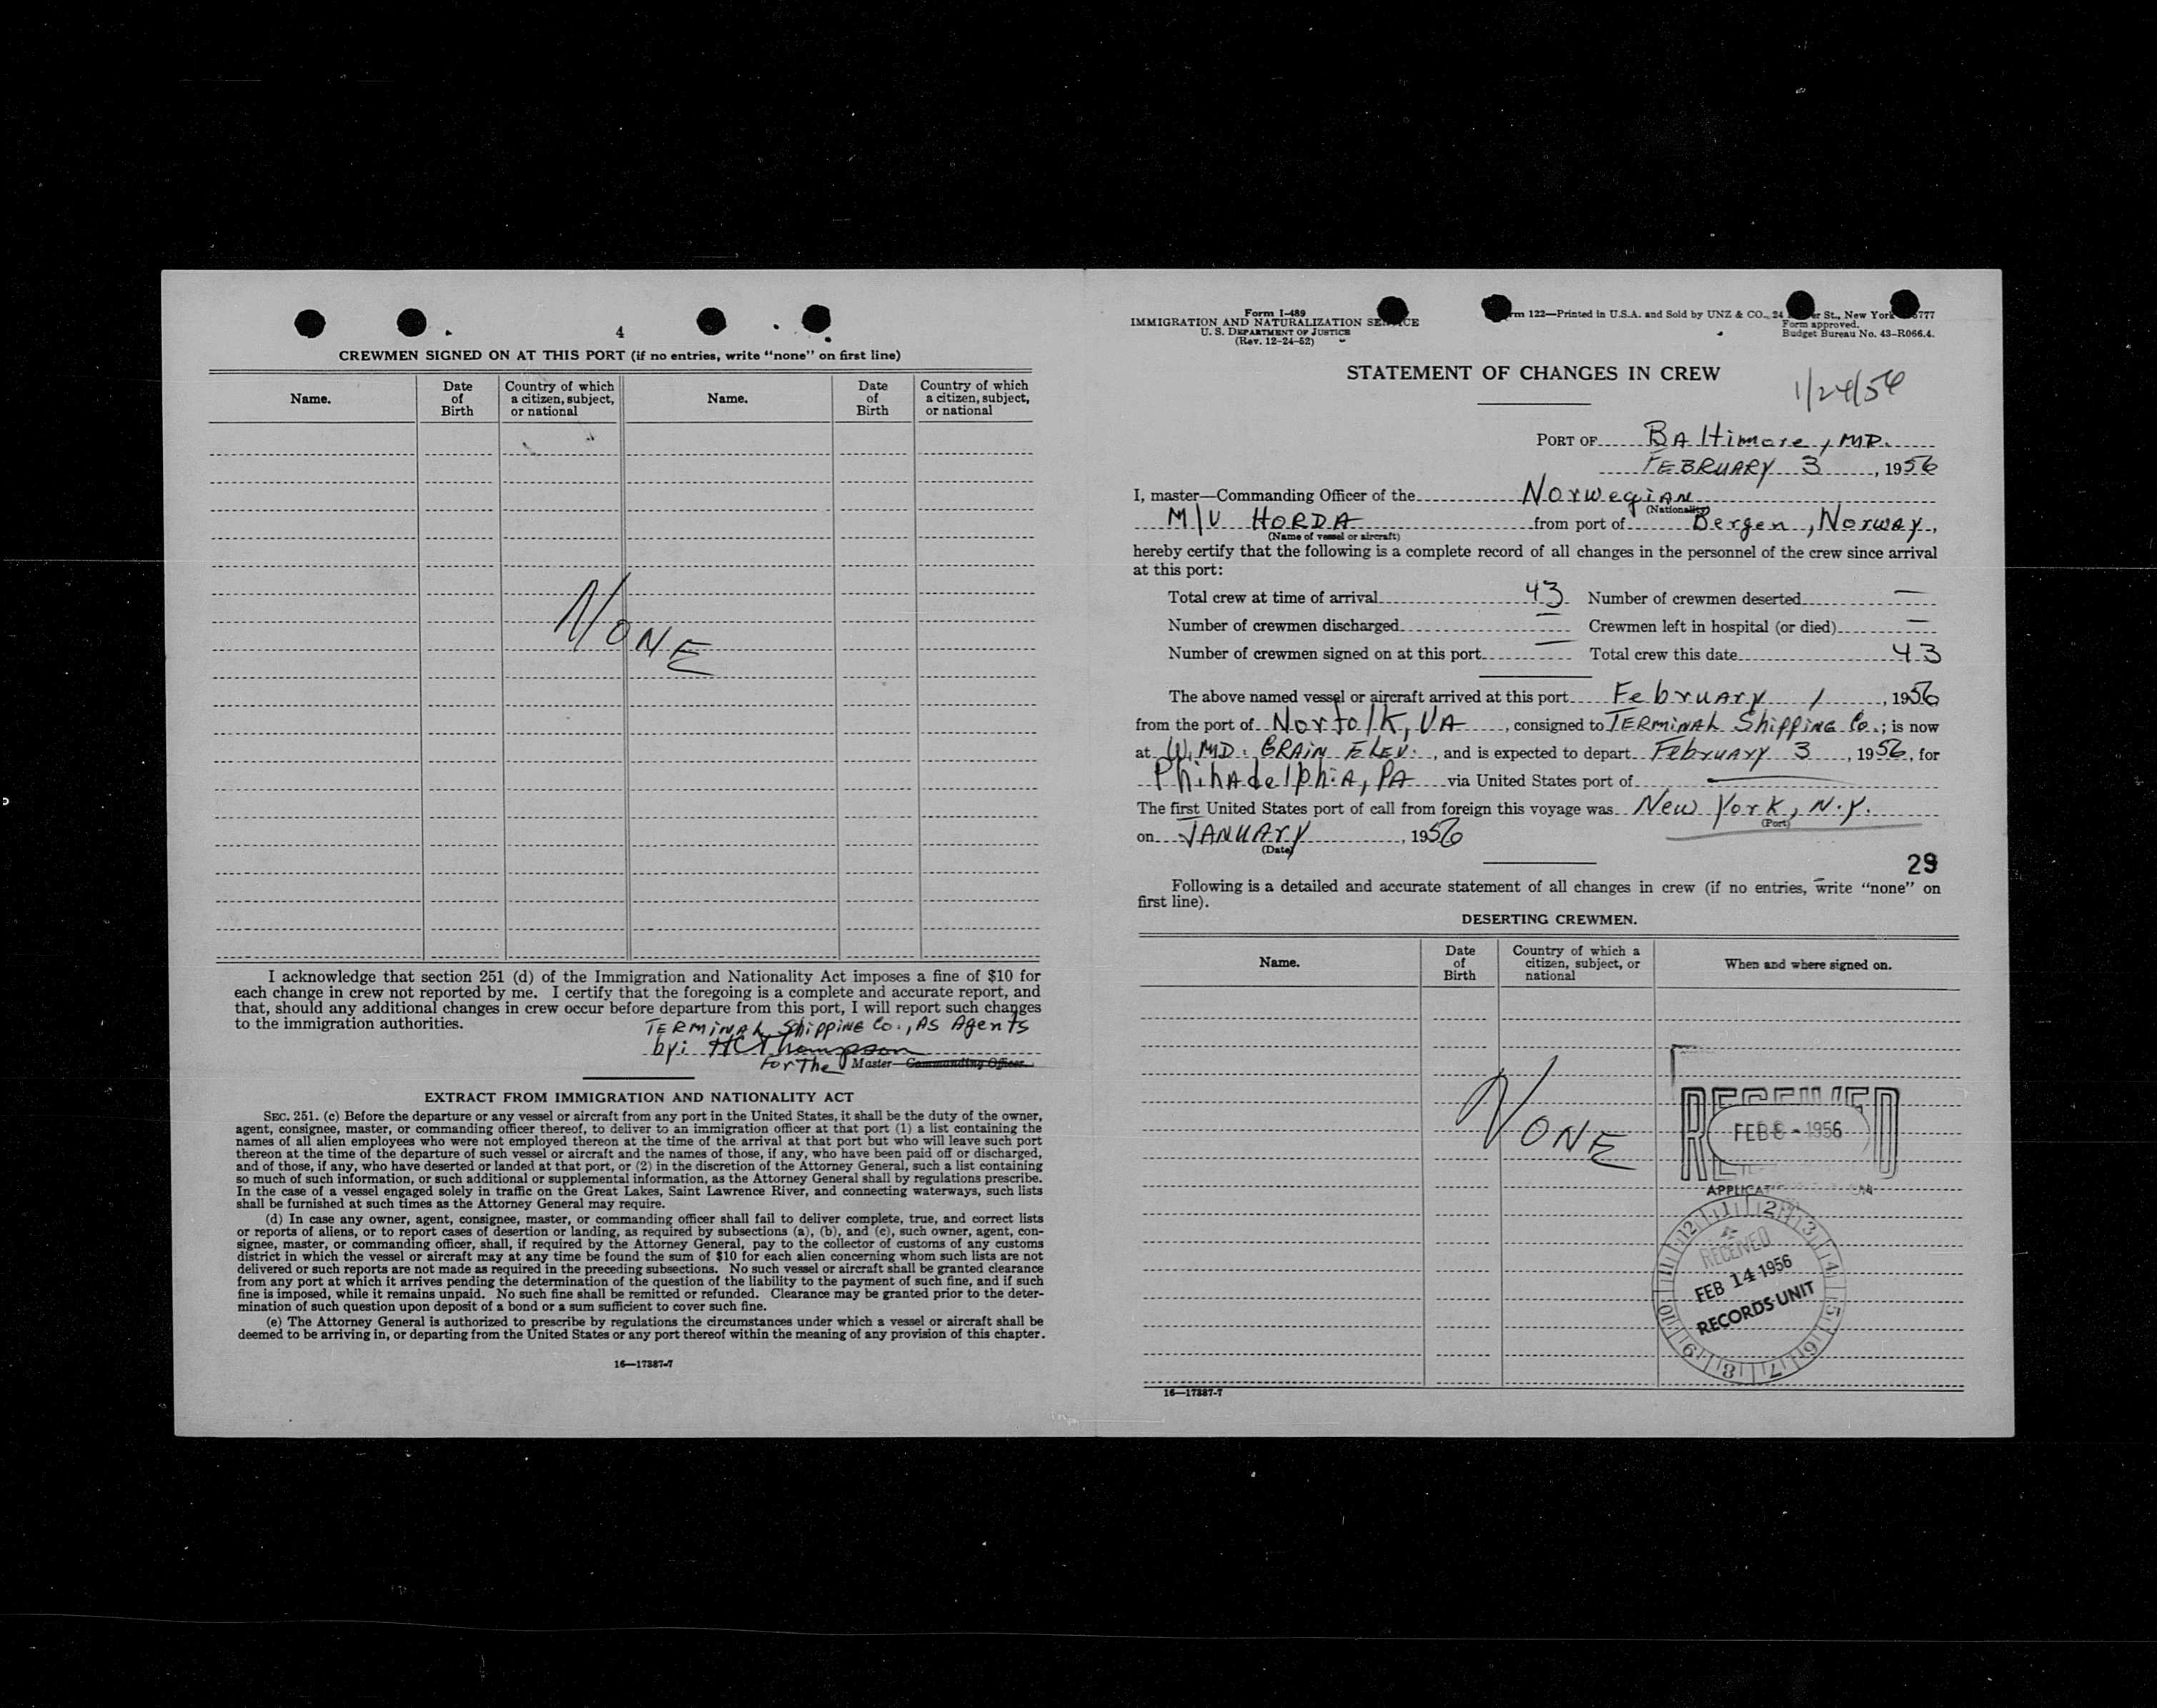 4
CREWMEN SIGNED ON AT THIS PORT (if no entries, write "none" on first line)
Name.
Date of Birth
Country of which a citizen, subject, or national
Name.
Date of Birth
Country of which a citizen, subject, or national
NONE
I acknowledge that section 251 (d) of the Immigration and Nationality Act imposes a fine of $10 for
each change in crew not reported by me. I certify that the foregoing is a complete and accurate report, and
that, should any additional changes in crew occur before departure from this port, I will report such changes
to the immigration authorities.
TERMINAL Shipping Co., AS Agents
by: HC Thompson
For The Master—Commanding Officer.
EXTRACT FROM IMMIGRATION AND NATIONALITY ACT
SEC. 251. (c) Before the departure or any vessel or aircraft from any port in the United States, it shall be the duty of the owner,
agent, consignee, master, or commanding officer thereof, to deliver to an immigration officer at that port (1) a list containing the
names of all alien employees who were not employed thereon at the time of the arrival at that port but who will leave such port
thereon at the time of the departure of such vessel or aircraft and the names of those, if any, who have been paid off or discharged,
and of those, if any, who have deserted or landed at that port, or (2) in the discretion of the Attorney General, such a list containing
so much of such information, or such additional or supplemental information, as the Attorney General shall by regulations prescribe.
In the case of a vessel engaged solely in traffic on the Great Lakes, Saint Lawrence River, and connecting waterways, such lists
shall be furnished at such times as the Attorney General may require.
(d) In case any owner, agent, consignee, master, or commanding officer shall fail to deliver complete, true, and correct lists
or reports of aliens, or to report cases of desertion or landing, as required by subsections (a), (b), and (c), such owner, agent, con-
signee, master, or commanding officer, shall, if required by the Attorney General, pay to the collector of customs of any customs
district in which the vessel or aircraft may at any time be found the sum of $10 for each alien concerning whom such lists are not
delivered or such reports are not made as required in the preceding subsections. No such vessel or aircraft shall be granted clearance
from any port at which it arrives pending the determination of the question of the liability to the payment of such fine, and if such
fine is imposed, while it remains unpaid. No such fine shall be remitted or refunded. Clearance may be granted prior to the deter-
mination of such question upon deposit of a bond or a sum sufficient to cover such fine.
(e) The Attorney General is authorized to prescribe by regulations the circumstances under which a vessel or aircraft shall be
deemed to be arriving in, or departing from the United States or any port thereof within the meaning of any provision of this chapter.
16—17387-7
Form I-489
IMMIGRATION AND NATURALIZATION SERVICE
U. S. DEPARTMENT OF JUSTICE
(Rev. 12-24-52)
122—Printed in U.S.A. and Sold by UNZ & CO., 24 St., New York
Form approved.
Budget Bureau No. 43-R066.4.
STATEMENT OF CHANGES IN CREW
1/24/56
PORT OF BAltimore, MD.
FEBRUARY 3, 1956
I, master—Commanding Officer of the Norwegian
(Nationality)
M/V HORDA from port of Bergen, Norway,
(Name of vessel or aircraft)
hereby certify that the following is a complete record of all changes in the personnel of the crew since arrival
at this port:
Total crew at time of arrival 43 Number of crewmen deserted —
Number of crewmen discharged — Crewmen left in hospital (or died) —
Number of crewmen signed on at this port — Total crew this date 43
The above named vessel or aircraft arrived at this port February 1, 1956
from the port of Norfolk, VA, consigned to TERMINAL Shipping Co.; is now
at W. MD. GRAIN ELEV., and is expected to depart February 3, 1956, for
Philadelphia, PA via United States port of —
The first United States port of call from foreign this voyage was New York, N.Y.
(Port)
on JANUARY, 1956
(Date)
29
Following is a detailed and accurate statement of all changes in crew (if no entries, write "none" on
first line).
DESERTING CREWMEN.
Name.
Date of Birth
Country of which a citizen, subject, or national
When and where signed on.
NONE
RECEIVED
FEB 8 - 1956
12 1 2 3 4 5 6 7 8 9 10 11
RECEIVED
FEB 14 1956
RECORDS UNIT
16—17387-7